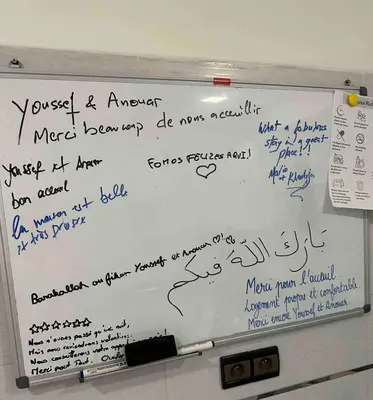 Youssef & Anouar
Merci beaucoup de nous accueillir
Youssef et Anouar
bon accueil
la maison est belle
et très propre
FOMOS FELIZES AQUI!
What a fabulous
stay in a great
place!!
Barakallah oufikum Youssef et Anouar
بَارَكَ اللَّهُ فِيكُم
Merci pour l'accueil
Logement propre et confortable.
Merci encore Youssef et Anouar.
Nous n'avons passé qu'une nuit,
Mais nous reviendrons volontiers.
Nous conseillerons votre
Merci pour tout.